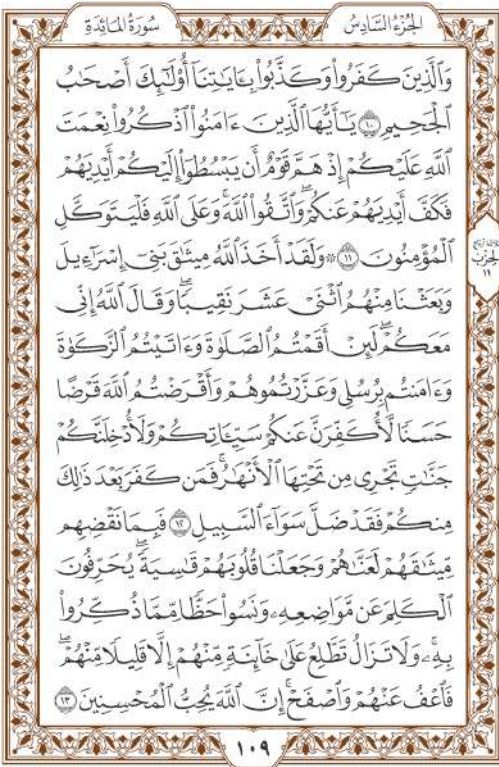 سُورَةُ المَائِدَةِ
الجُزْءُ السَّادِسُ
وَٱلَّذِينَ كَفَرُواْ وَكَذَّبُواْ بِـَٔايَٰتِنَآ أُوْلَٰٓئِكَ أَصْحَٰبُ
ٱلْجَحِيمِ ١٠ يَٰٓأَيُّهَا ٱلَّذِينَ ءَامَنُواْ ٱذْكُرُواْ نِعْمَتَ
ٱللَّهِ عَلَيْكُمْ إِذْ هَمَّ قَوْمٌ أَن يَبْسُطُوٓاْ إِلَيْكُمْ أَيْدِيَهُمْ
فَكَفَّ أَيْدِيَهُمْ عَنكُمْۖ وَٱتَّقُواْ ٱللَّهَۚ وَعَلَى ٱللَّهِ فَلْيَتَوَكَّلِ
ٱلْمُؤْمِنُونَ ١١ ۞ وَلَقَدْ أَخَذَ ٱللَّهُ مِيثَٰقَ بَنِيٓ إِسْرَٰٓءِيلَ
وَبَعَثْنَا مِنْهُمُ ٱثْنَيْ عَشَرَ نَقِيبًاۖ وَقَالَ ٱللَّهُ إِنِّي
مَعَكُمْۖ لَئِنْ أَقَمْتُمُ ٱلصَّلَوٰةَ وَءَاتَيْتُمُ ٱلزَّكَوٰةَ
وَءَامَنتُم بِرُسُلِي وَعَزَّرْتُمُوهُمْ وَأَقْرَضْتُمُ ٱللَّهَ قَرْضًا
حَسَنًا لَّأُكَفِّرَنَّ عَنكُمْ سَيِّـَٔاتِكُمْ وَلَأُدْخِلَنَّكُمْ
جَنَّٰتٍ تَجْرِي مِن تَحْتِهَا ٱلْأَنْهَٰرُۚ فَمَن كَفَرَ بَعْدَ ذَٰلِكَ
مِنكُمْ فَقَدْ ضَلَّ سَوَآءَ ٱلسَّبِيلِ ١٢ فَبِمَا نَقْضِهِم
مِّيثَٰقَهُمْ لَعَنَّٰهُمْ وَجَعَلْنَا قُلُوبَهُمْ قَٰسِيَةًۖ يُحَرِّفُونَ
ٱلْكَلِمَ عَن مَّوَاضِعِهِۦ وَنَسُواْ حَظًّا مِّمَّا ذُكِّرُواْ
بِهِۦۚ وَلَا تَزَالُ تَطَّلِعُ عَلَىٰ خَآئِنَةٍ مِّنْهُمْ إِلَّا قَلِيلًا مِّنْهُمْۖ
فَٱعْفُ عَنْهُمْ وَٱصْفَحْۚ إِنَّ ٱللَّهَ يُحِبُّ ٱلْمُحْسِنِينَ ١٣
الحِزْب
١١
١٠٩